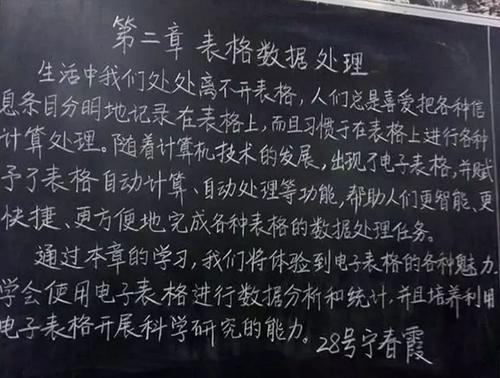 第二章 表格数据处理
生活中我们处处离不开表格，人们总是喜爱把各种信
息条目分明地记录在表格上，而且习惯于在表格上进行各种
计算处理。随着计算机技术的发展，出现了电子表格，并赋
予了表格自动计算、自动处理等功能，帮助人们更智能、更
快捷、更方便地完成各种表格的数据处理任务。
通过本章的学习，我们将体验到电子表格的各种魅力
学会使用电子表格进行数据分析和统计，并且培养利用
电子表格开展科学研究的能力。28号宁春霞